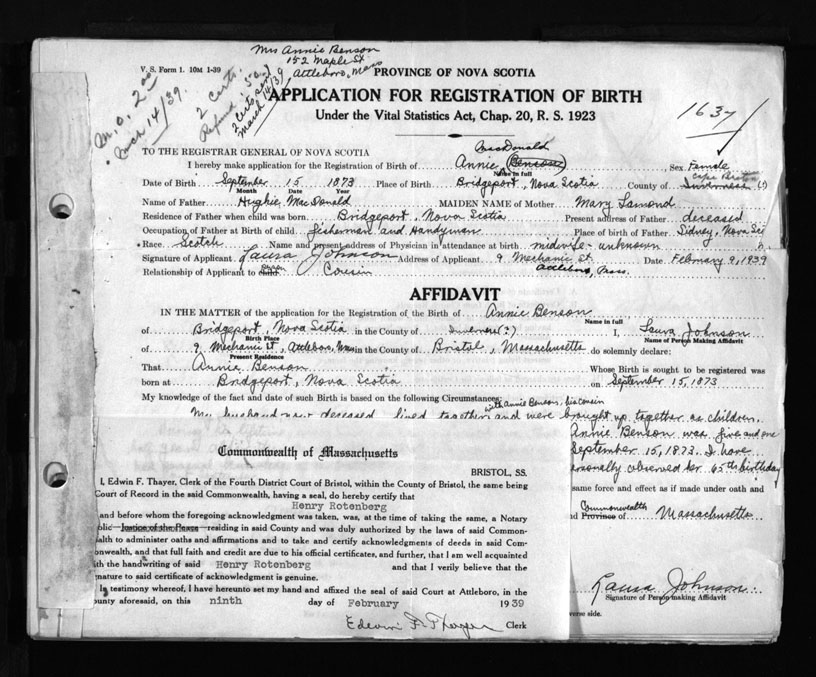 Mrs Annie Benson
152 Maple St
Attleboro, Mass
V. S. Form 1. 10M 1-39
M.O. 2.00
March 14/39.
2 Certs.
Refund .50
2 Certs
March 14/39
PROVINCE OF NOVA SCOTIA
APPLICATION FOR REGISTRATION OF BIRTH
Under the Vital Statistics Act, Chap. 20, R. S. 1923
1637
TO THE REGISTRAR GENERAL OF NOVA SCOTIA
MacDonald
I hereby make application for the Registration of Birth of Annie (Benson) Sex Female
Name in full
Cape Breton
Date of Birth September 15 1873 Place of Birth Bridgeport, Nova Scotia County of Inverness (?)
Month Date Year
Name of Father Hughie MacDonald MAIDEN NAME of Mother Mary Lamond
Residence of Father when child was born Bridgeport, Nova Scotia Present address of Father deceased
Occupation of Father at Birth of child fisherman and Handyman Place of birth of Father Sidney, Nova Sco
Race Scotch Name and present address of Physician in attendance at birth midwife - unknown
Signature of Applicant Laura Johnson Address of Applicant 9 Mechanic St. Date February 9, 1939
Attleboro, Mass.
Relationship of Applicant to child Cousin
AFFIDAVIT
IN THE MATTER of the application for the Registration of the Birth of Annie Benson
Name in full
of Bridgeport, Nova Scotia in the County of Inverness (?) I, Laura Johnson
Birth Place Name of Person Making Affidavit
of 9 Mechanic St, Attleboro, Mass in the County of Bristol, Massachusetts do solemnly declare:
Present Residence
That Annie Benson Whose Birth is sought to be registered was
born at Bridgeport, Nova Scotia on September 15, 1873
My knowledge of the fact and date of such Birth is based on the following Circumstances:
with Annie Benson, his cousin
My husband now deceased lived together and were brought up together as children.
Annie Benson was five and one
September 15, 1873. I have
personally observed her 65th birthday
same force and effect as if made under oath and
Commonwealth
nd Province of Massachusetts
Laura Johnson
Signature of Person making Affidavit
verse side.
Commonwealth of Massachusetts
BRISTOL, SS.
I, Edwin F. Thayer, Clerk of the Fourth District Court of Bristol, within the County of Bristol, the same being
Court of Record in the said Commonwealth, having a seal, do hereby certify that
Henry Rotenberg
and before whom the foregoing acknowledgment was taken, was, at the time of taking the same, a Notary
blic Justice of the Peace residing in said County and was duly authorized by the laws of said Common-
wealth to administer oaths and affirmations and to take and certify acknowledgments of deeds in said Com-
onwealth, and that full faith and credit are due to his official certificates, and further, that I am well acquainted
ith the handwriting of said Henry Rotenberg and that I verily believe that the
gnature to said certificate of acknowledgment is genuine.
In testimony whereof, I have hereunto set my hand and affixed the seal of said Court at Attleboro, in the
ounty aforesaid, on this ninth day of February 1939
Edwin F. Thayer Clerk